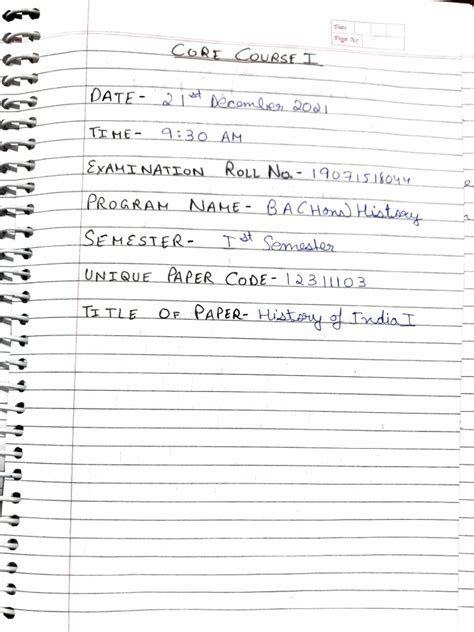 Date
Page No
CORE COURSE I
DATE- 21st December 2021
TIME- 9:30 AM
EXAMINATION ROLL No.- 19071518044
PROGRAM NAME- BA(Hons) History
SEMESTER- Ist Semester
UNIQUE PAPER CODE- 12311103
TITLE OF PAPER- History of India I